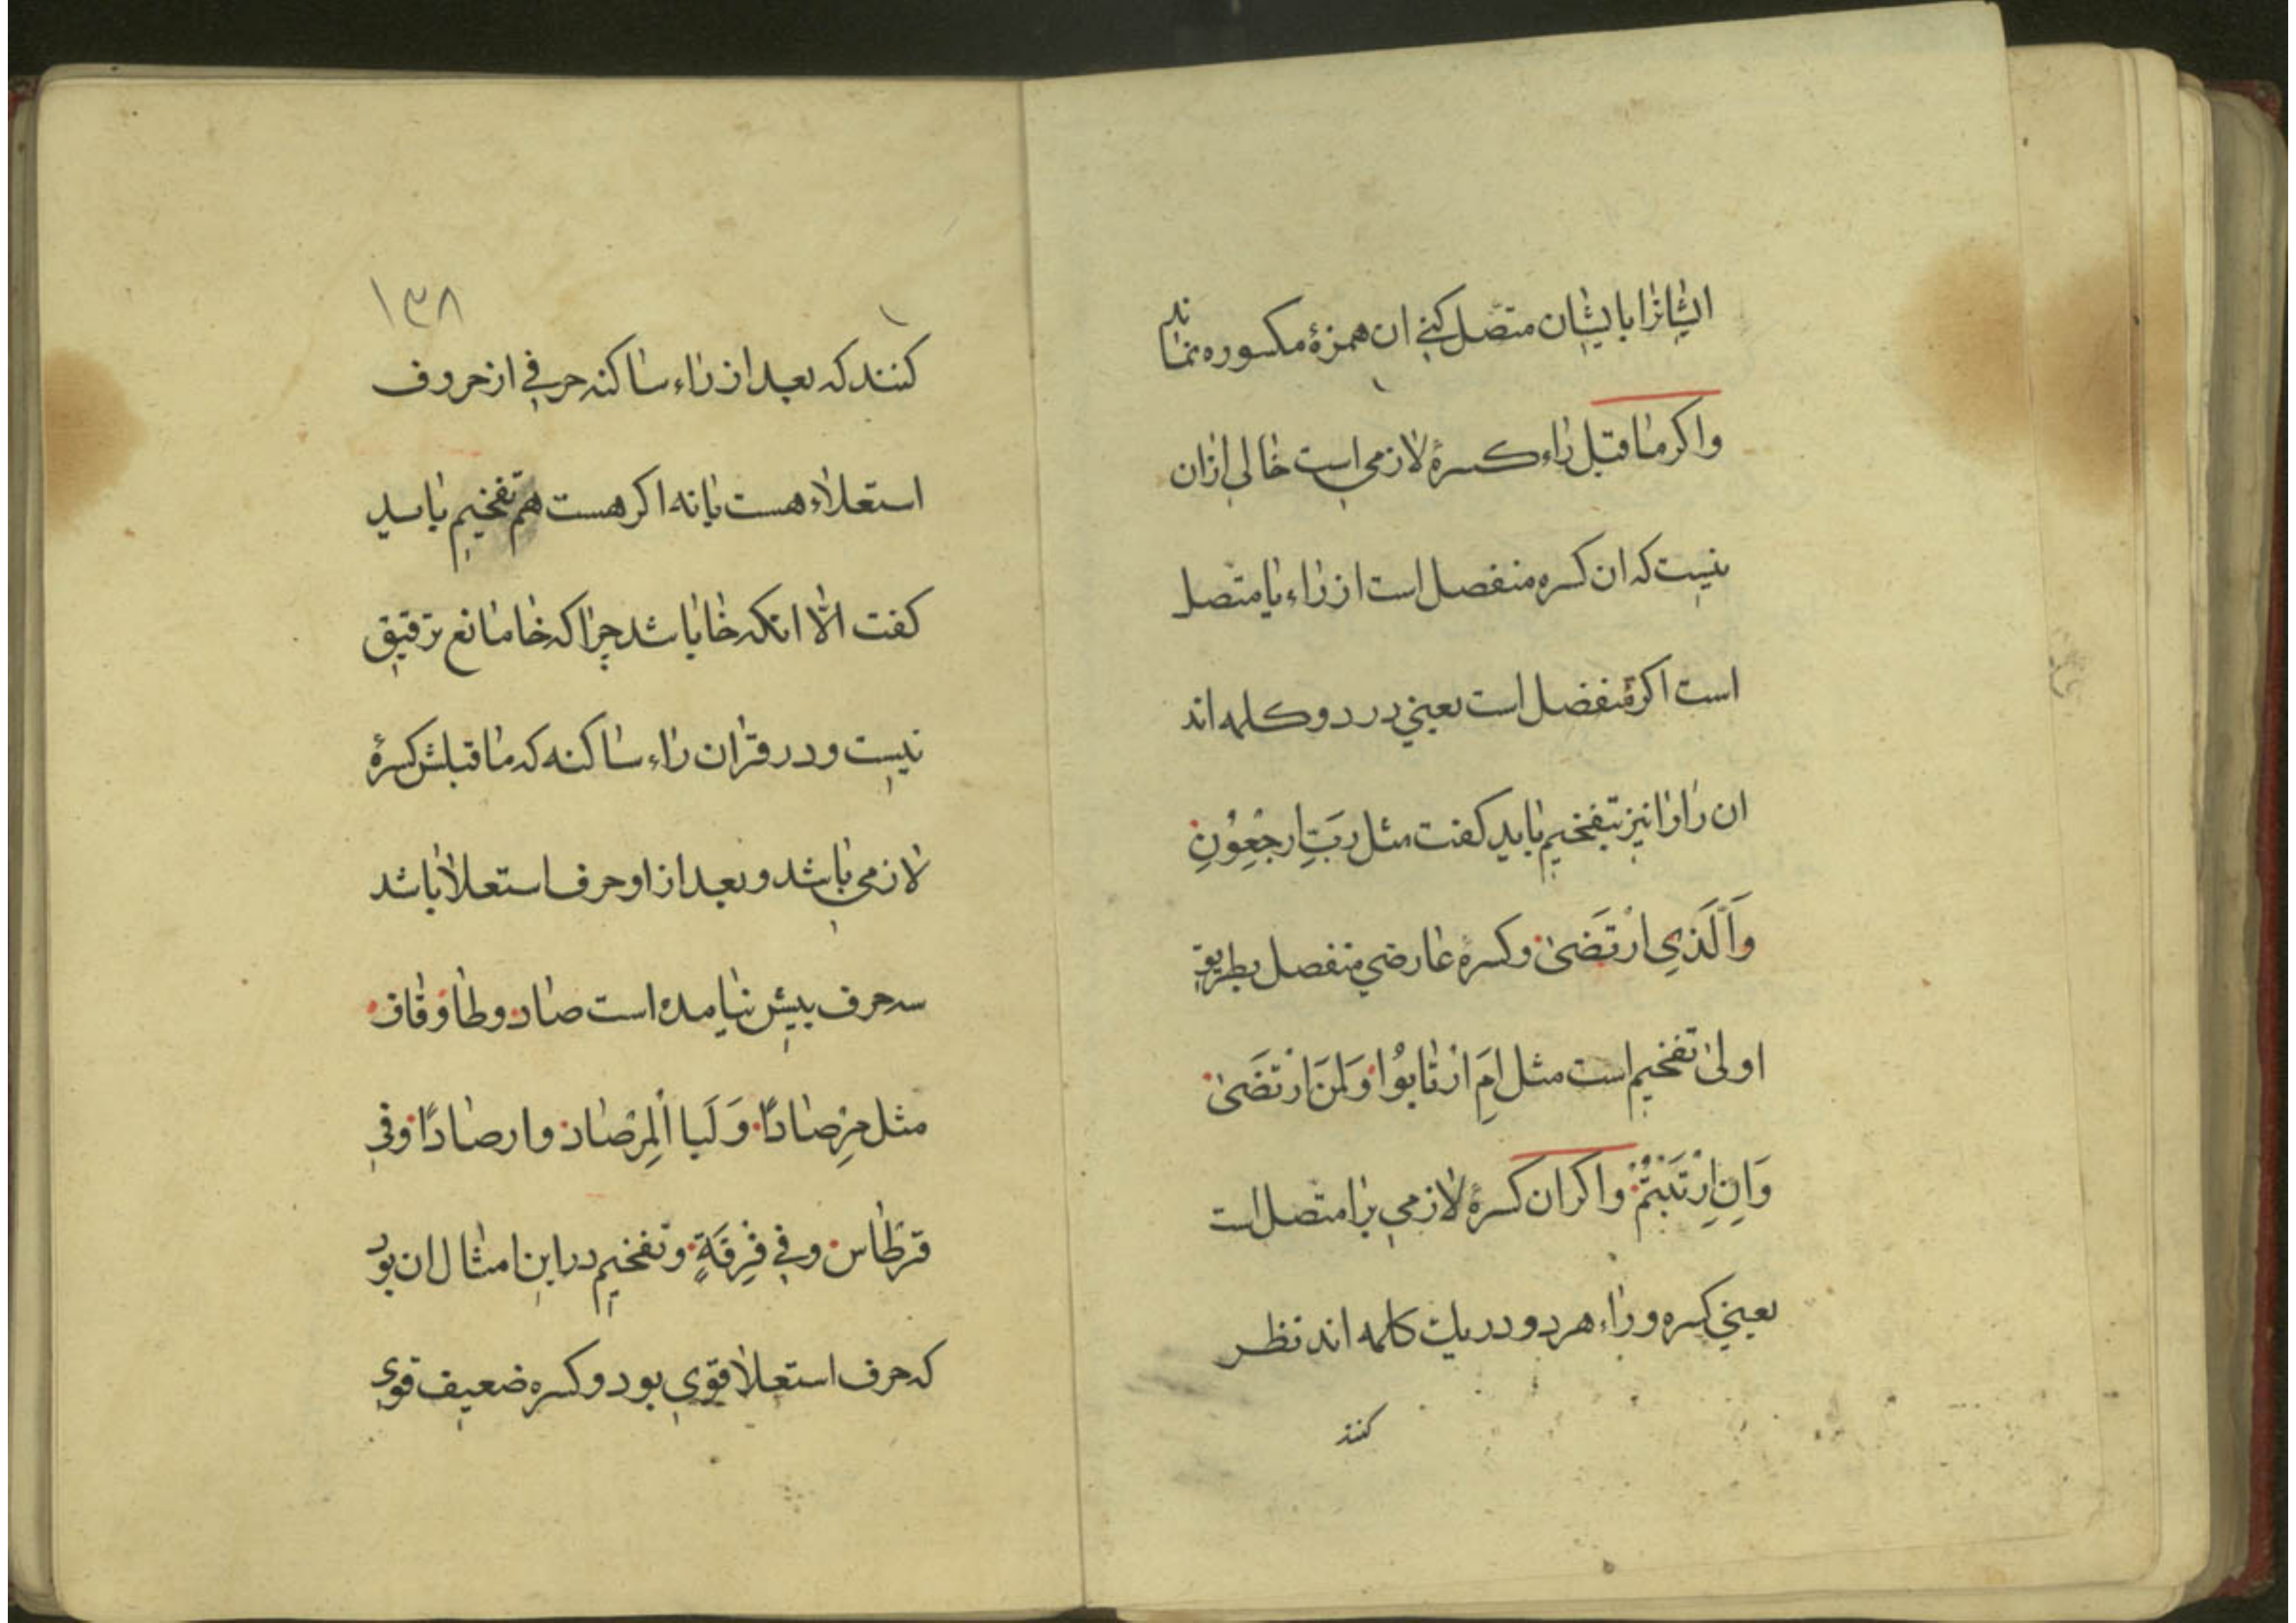 ایشانرا بایشان متصل کنی ان همزهٔ مکسوره نماند
واکر ماقبل راء کسرهٔ لازمی است خالی ازان
نیست که ان کسره منفصل است از راء یا متصل
است اکر منفصل است یعنی در دو کلمه اند
ان را را نیز بتفخیم باید کفت مثل رَبِّ ارجِعُونِ
وَالَّذِی ارْتَضَىٰ وکسرهٔ عارضی منفصل بطریق
اولیٰ تفخیم است مثل اَمِ ارْتَابُوا وَلِمَنَ ارْتَضَىٰ
وَاِنِ ارْتَبْتُمْ واکر ان کسرهٔ لازمی برا متصل است
یعنی کسره وراء هر دو در یك کلمه اند نظر
کنند
۱۳۸
کنند که بعد از راء ساکنه حرفی از حروف
استعلاء هست یا نه اکر هست هم تفخیم باید
کفت الّا انکه خا باشد چرا که خا مانع ترقیق
نیست ودر قران راء ساکنه که ماقبلش کسرهٔ
لازمی باشد وبعد از او حرف استعلا باشد
سه حرف بیش نیامده است صاد وطا وقاف
مثل مِرْصَادًا وَلَبِا الْمِرْصَاد وارصادًا وفی
قرطاس وفی فِرقَةٍ وتفخیم در این امثال ان بود
که حرف استعلا قوی بود وکسره ضعیف قوی